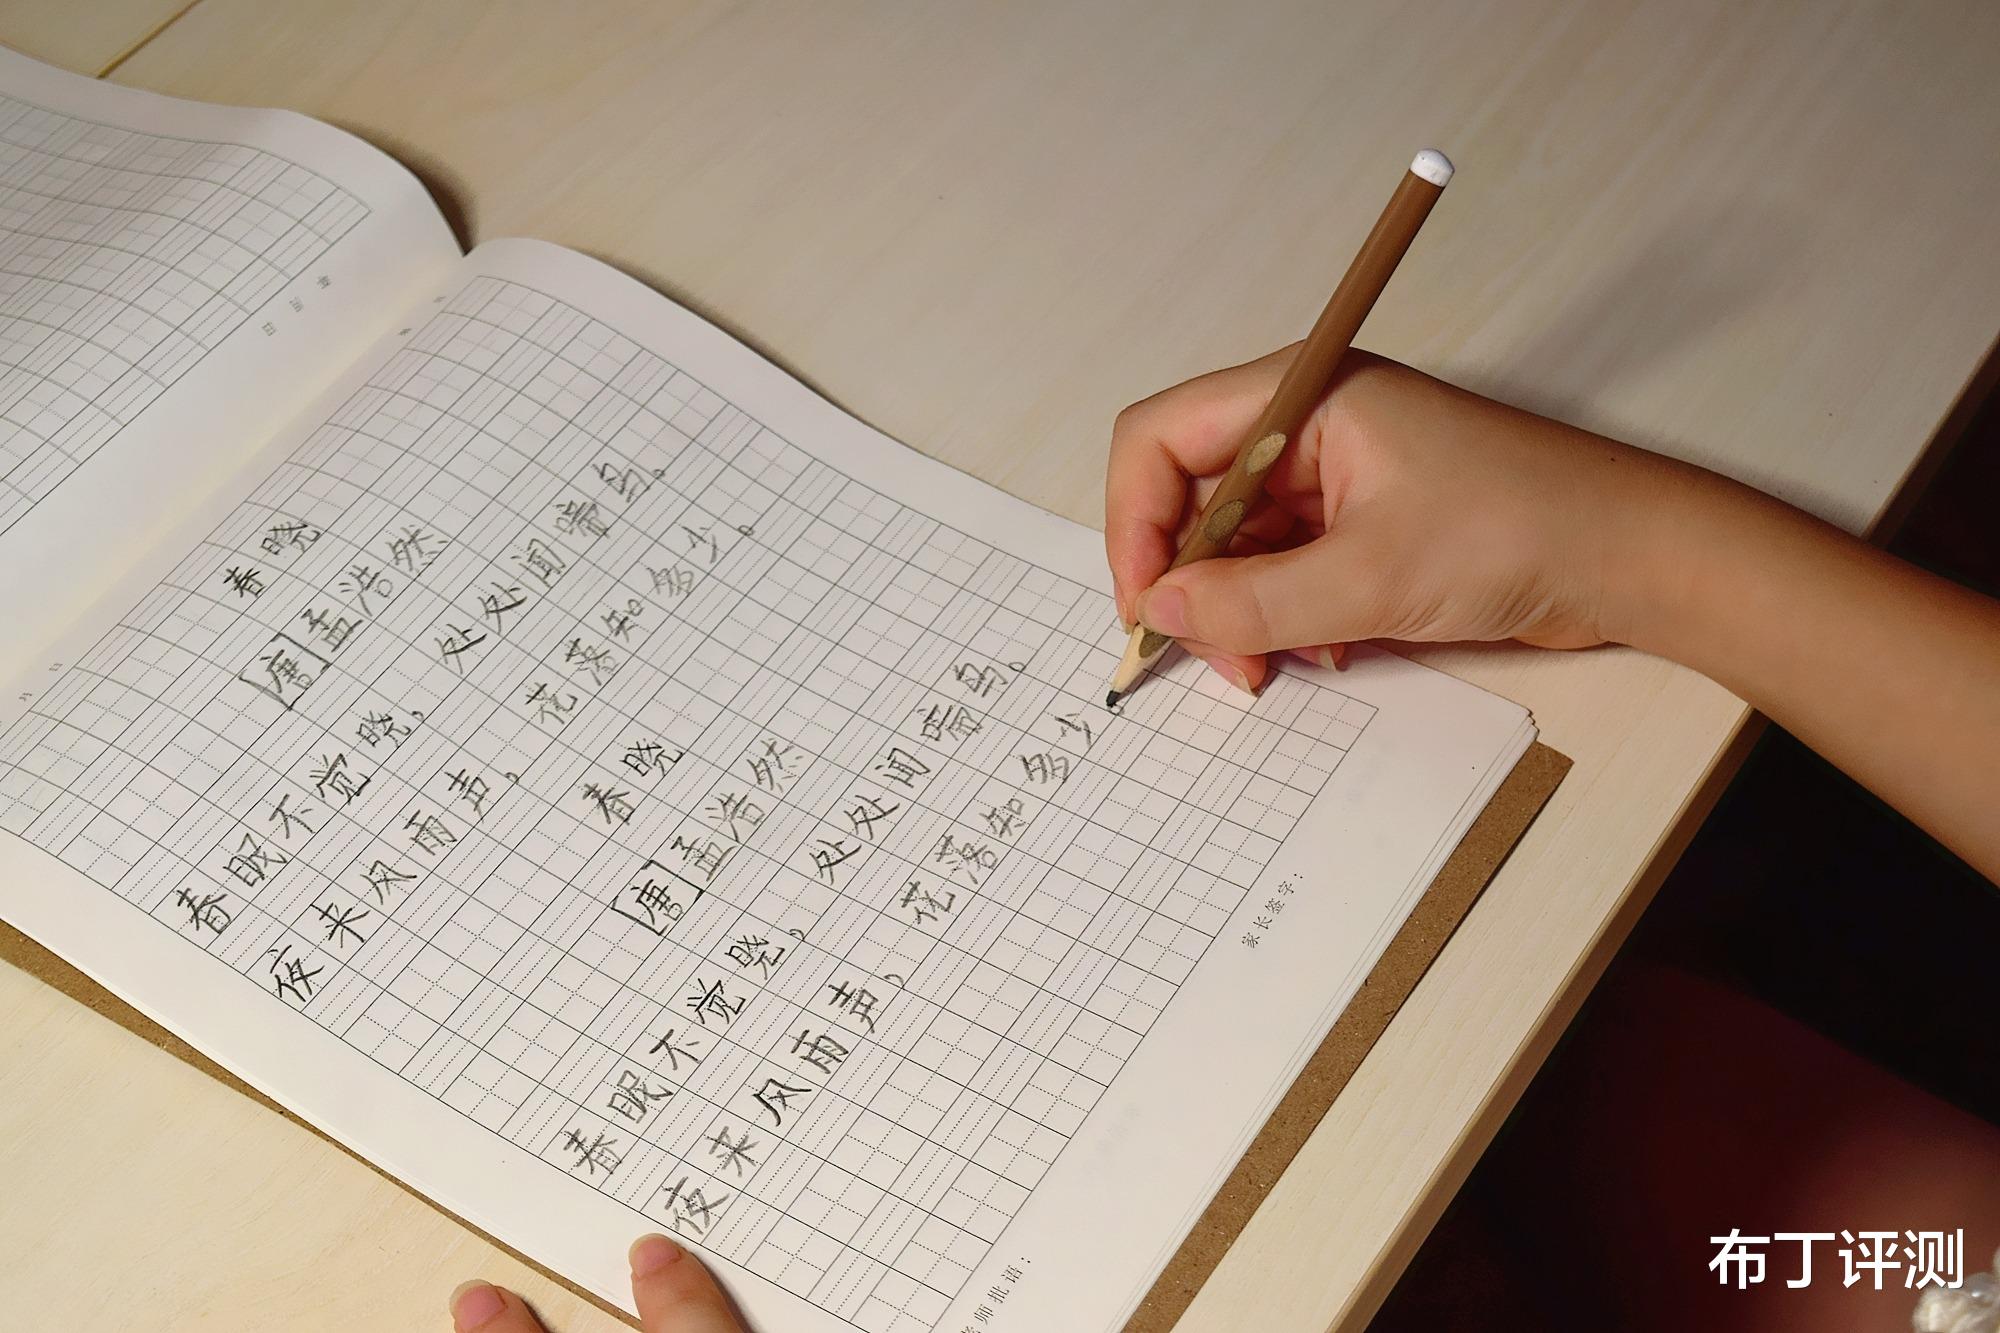 春晓
[唐]孟浩然
春眠不觉晓，处处闻啼鸟。
夜来风雨声，花落知多少。
春晓
[唐]孟浩然
春眠不觉晓，处处闻啼鸟。
夜来风雨声，花落知多少。
家长签字：
师批语：
布丁评测